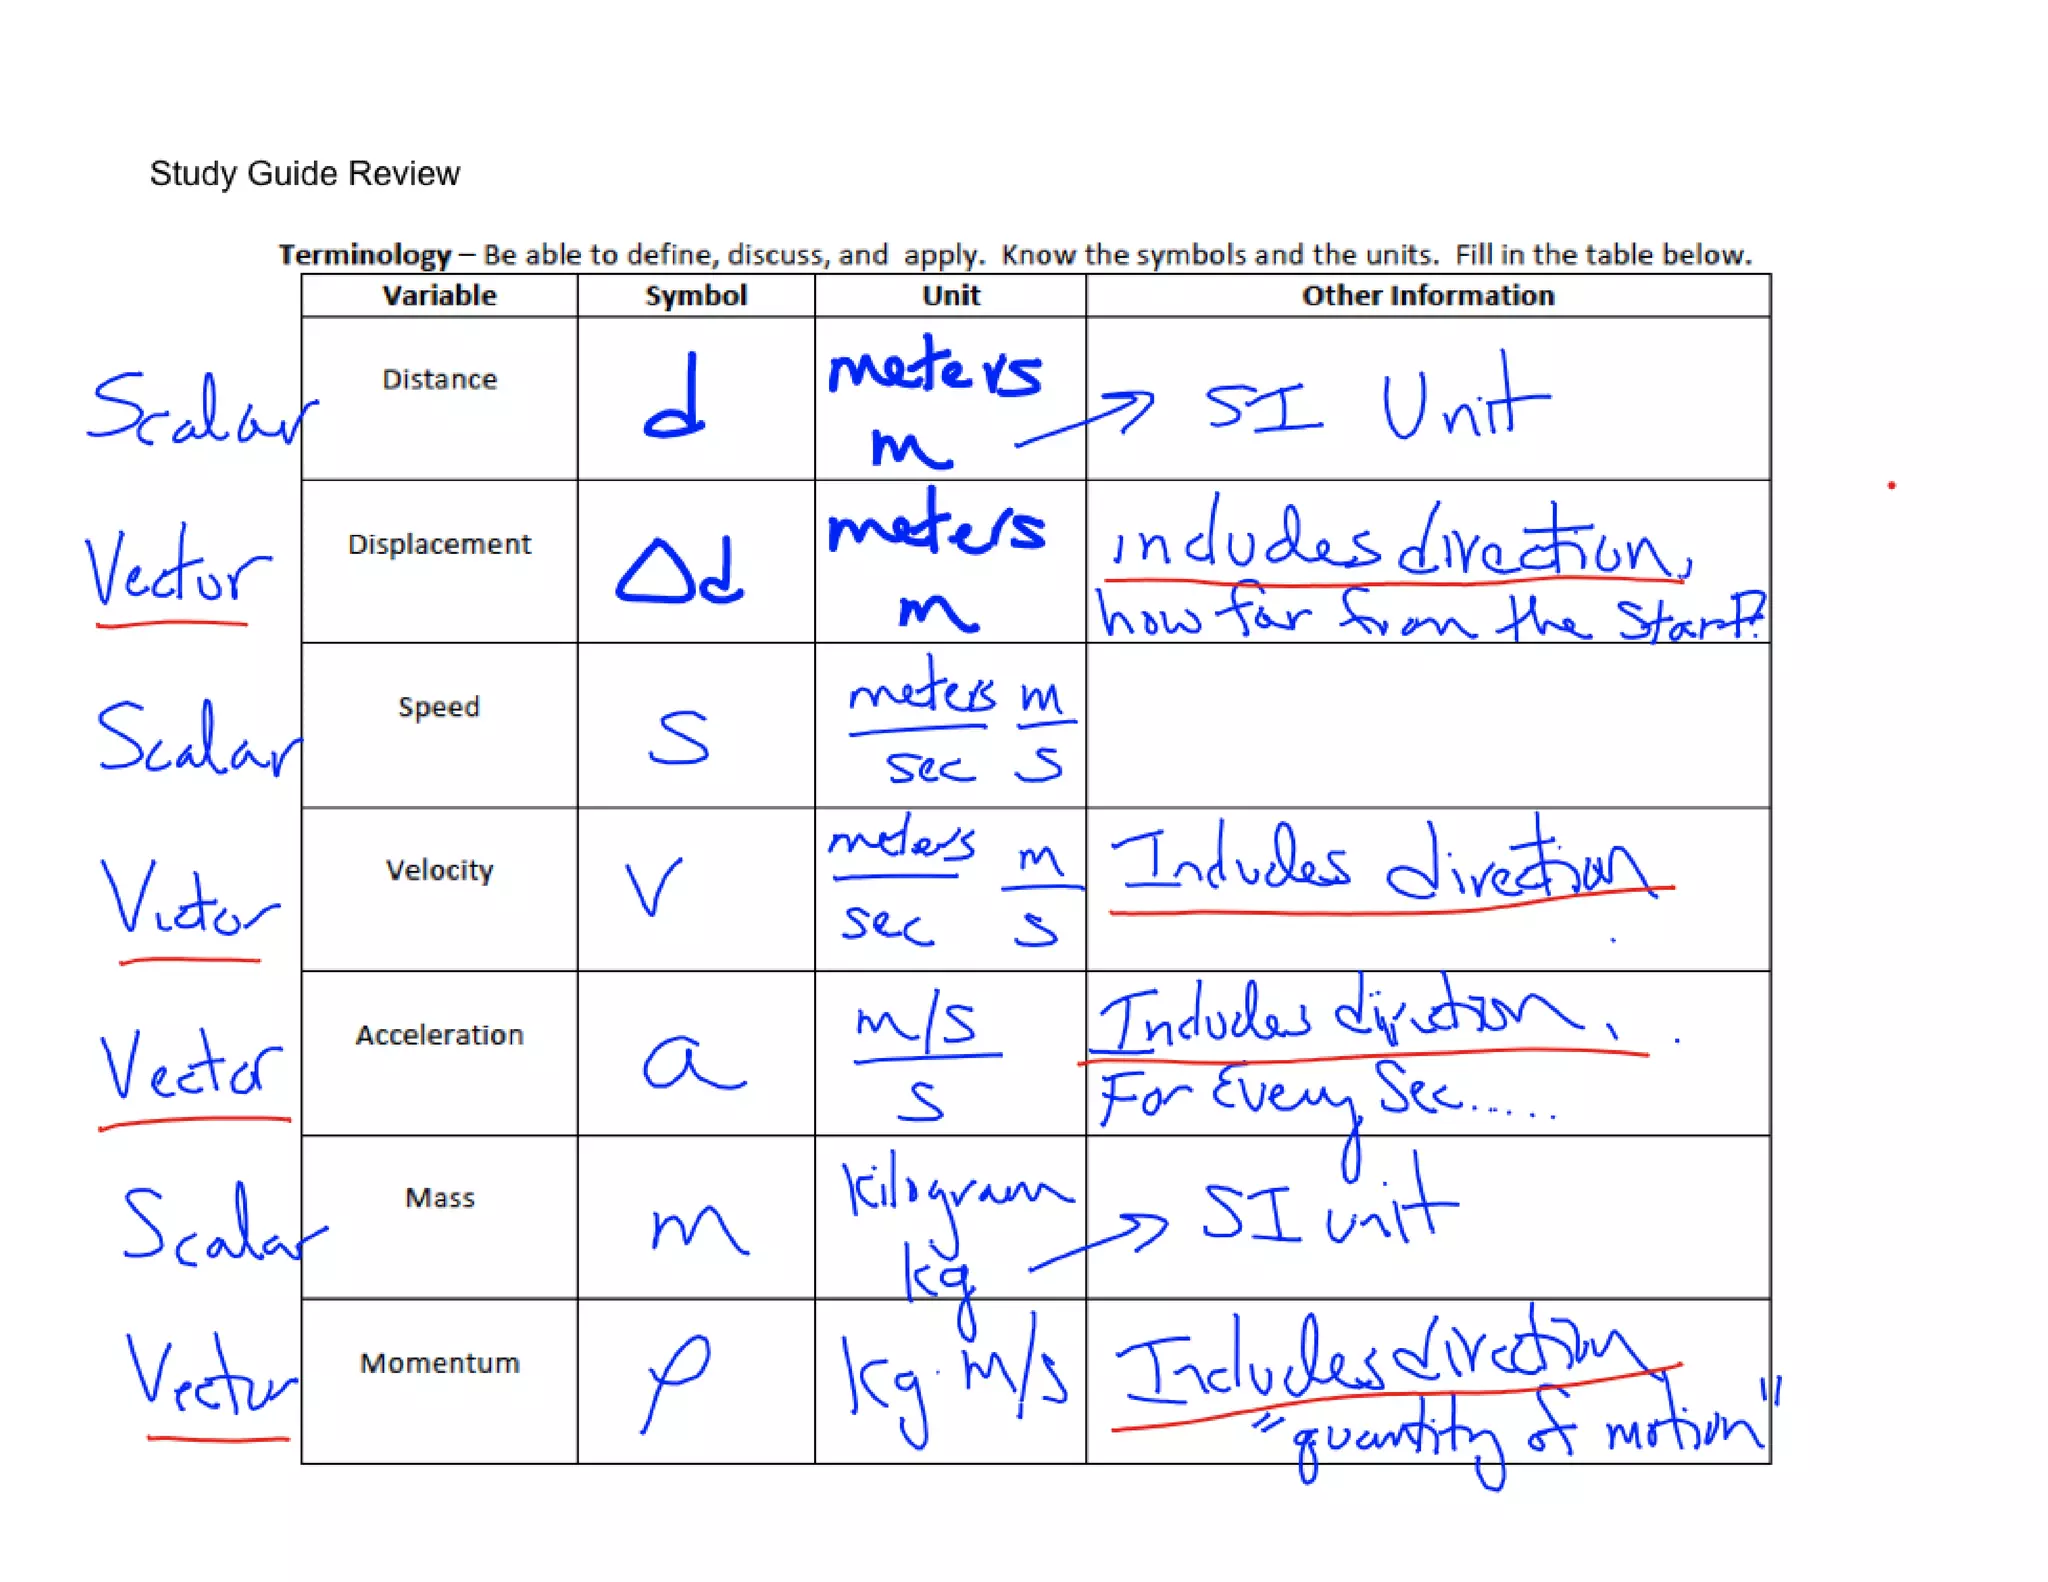 Study Guide Review
Terminology – Be able to define, discuss, and apply. Know the symbols and the units. Fill in the table below.
Variable Symbol Unit Other Information
Scalar Distance d meters
m → SI Unit
Vector Displacement Δd meters
m
includes direction,
how far from the start?
Scalar Speed s meters m
sec s
Vector Velocity v meters m
sec s
Includes direction
Vector Acceleration a m/s
s
Includes direction.
For Every Sec.....
Scalar Mass m kilogram
kg → SI unit
Vector Momentum p kg·m/s Includes direction
"quantity of motion"